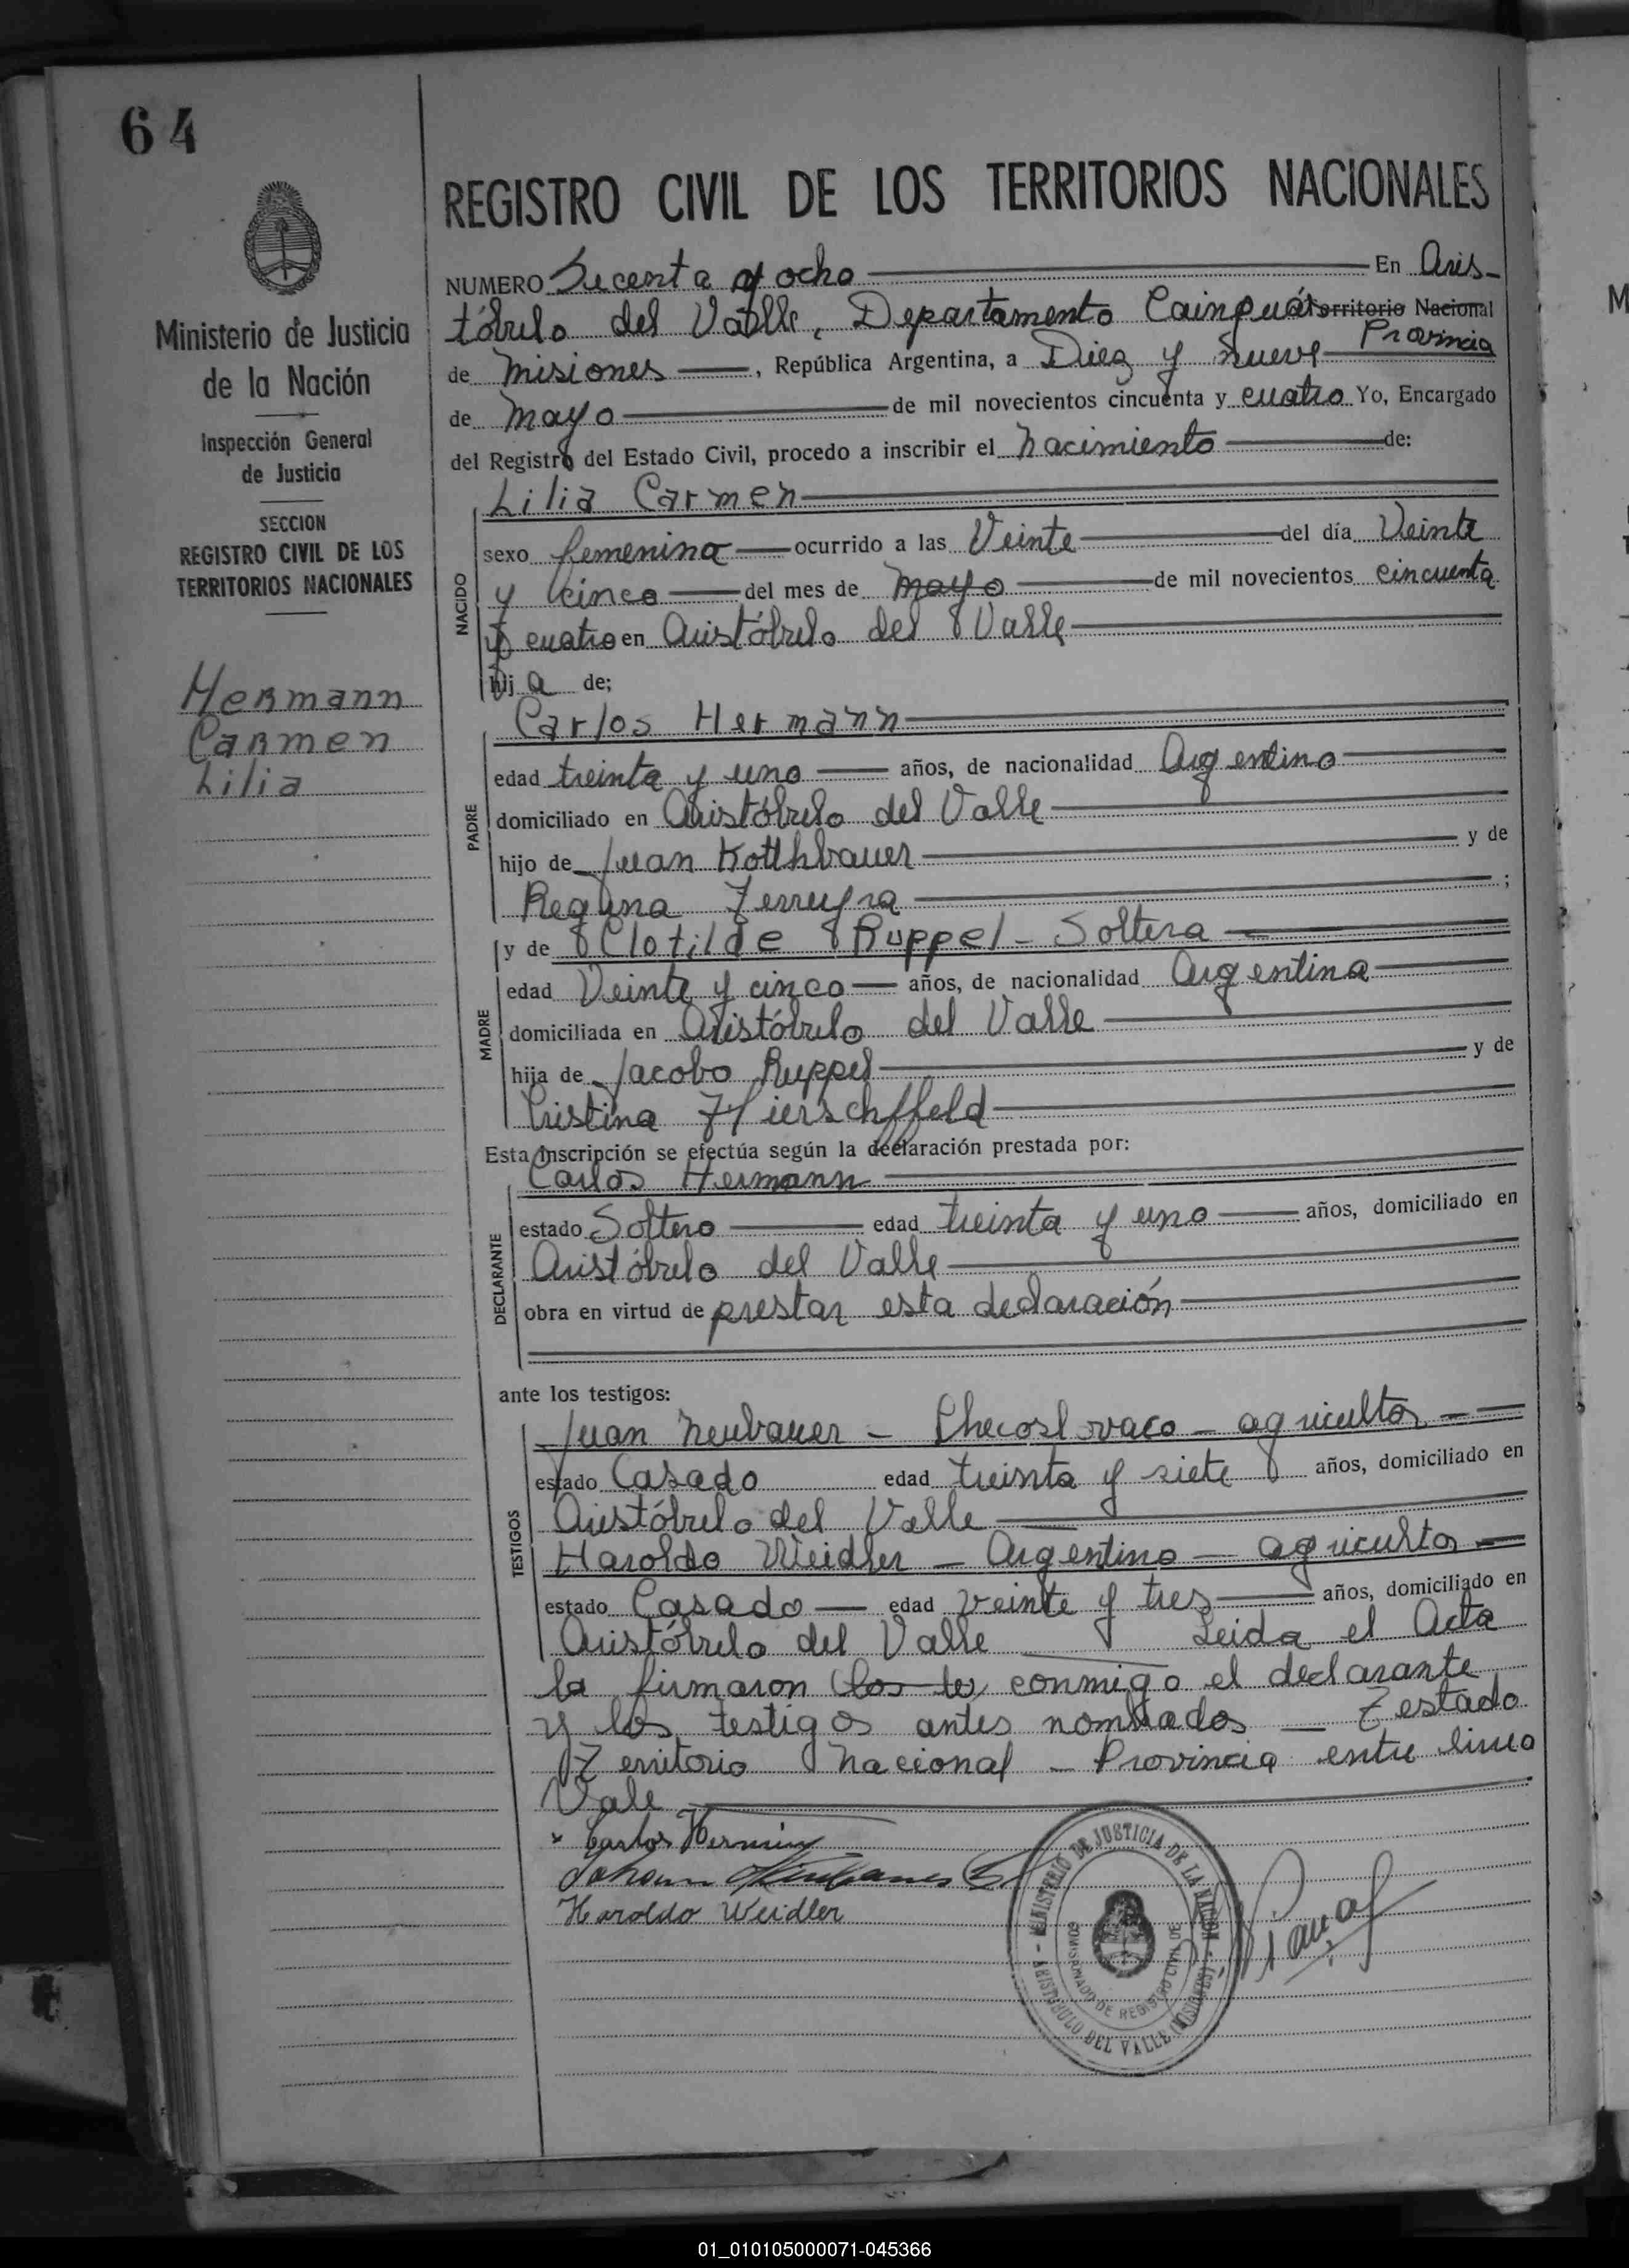 64
Ministerio de Justicia
de la Nación
Inspección General
de Justicia
SECCION
REGISTRO CIVIL DE LOS
TERRITORIOS NACIONALES
Hermann
Carmen
Lilia
REGISTRO CIVIL DE LOS TERRITORIOS NACIONALES
NUMERO Secenta y ocho En Aris-
tóbulo del Valle, Departamento Cainguás Territorio Nacional
Provincia
de Misiones, República Argentina, a Diez y nueve
de Mayo de mil novecientos cincuenta y cuatro Yo, Encargado
del Registro del Estado Civil, procedo a inscribir el nacimiento de:
NACIDO
Lilia Carmen
sexo femenina ocurrido a las Veinte del día Veinte
y cinco del mes de mayo de mil novecientos cincuenta
y cuatro en Aristóbulo del Valle
hija de;
PADRE
Carlos Hermann
edad treinta y uno años, de nacionalidad Argentino
domiciliado en Aristóbulo del Valle
hijo de Juan Kotthbauer y de
Regina Ferreyra ;
MADRE
y de Clotilde Ruppel - Soltera
edad Veinte y cinco años, de nacionalidad Argentina
domiciliada en Aristóbulo del Valle
hija de Jacobo Ruppel y de
Cristina Hierschffeld
Esta inscripción se efectúa según la declaración prestada por:
DECLARANTE
Carlos Hermann
estado Soltero edad treinta y uno años, domiciliado en
Aristóbulo del Valle
obra en virtud de prestar esta declaración
ante los testigos:
TESTIGOS
Juan Neubauer - Checoslovaco - agricultor
estado Casado edad treinta y siete años, domiciliado en
Aristóbulo del Valle
Haroldo Weidler - Argentino - agricultor
estado Casado edad veinte y tres años, domiciliado en
Aristóbulo del Valle Leida el Acta
la firmaron (los te) conmigo el declarante
y los testigos antes nombrados - Testado
Territorio Nacional - Provincia entre linea
Vale
x Carlos Hermann
Johann Neubauer
Haroldo Weidler
MINISTERIO DE JUSTICIA DE LA NACION
COMISIONADO DE REGISTRO CIVIL DE
ARISTOBULO DEL VALLE (MISIONES)
01_010105000071-045366